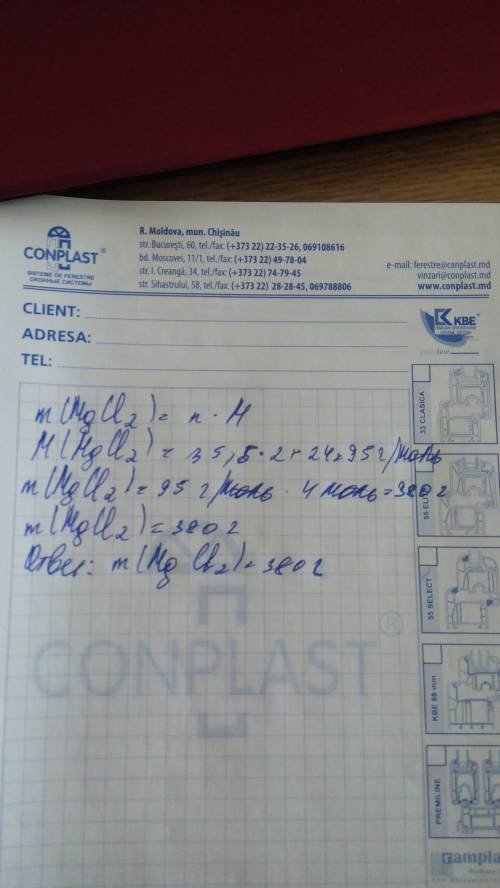 CONPLAST®
SISTEME DE FERESTRE
ОКОННЫЕ СИСТЕМЫ
R. Moldova, mun. Chişinău
str. Bucureşti, 60, tel./fax: (+373 22) 22-35-26, 069108616
bd. Moscovei, 11/1, tel./fax: (+373 22) 49-78-04
str. I. Creangă, 34, tel./fax: (+373 22) 74-79-45
str. Sihastrului, 58, tel./fax: (+373 22) 28-28-45, 069788806
e-mail: ferestre@conplast.md
vinzari@conplast.md
www.conplast.md
CLIENT:
ADRESA:
TEL:
KBE
m(MgCl2) = n · M
M(MgCl2) = 35,5·2+24=95г/моль
m(MgCl2) = 95 г/моль · 4 моль = 380 г
m(MgCl2) = 380 г
Ответ: m(MgCl2) = 380 г
CONPLAST®
33 CLASICA
55 SELECT
KBE 88 mm
PREMILINE